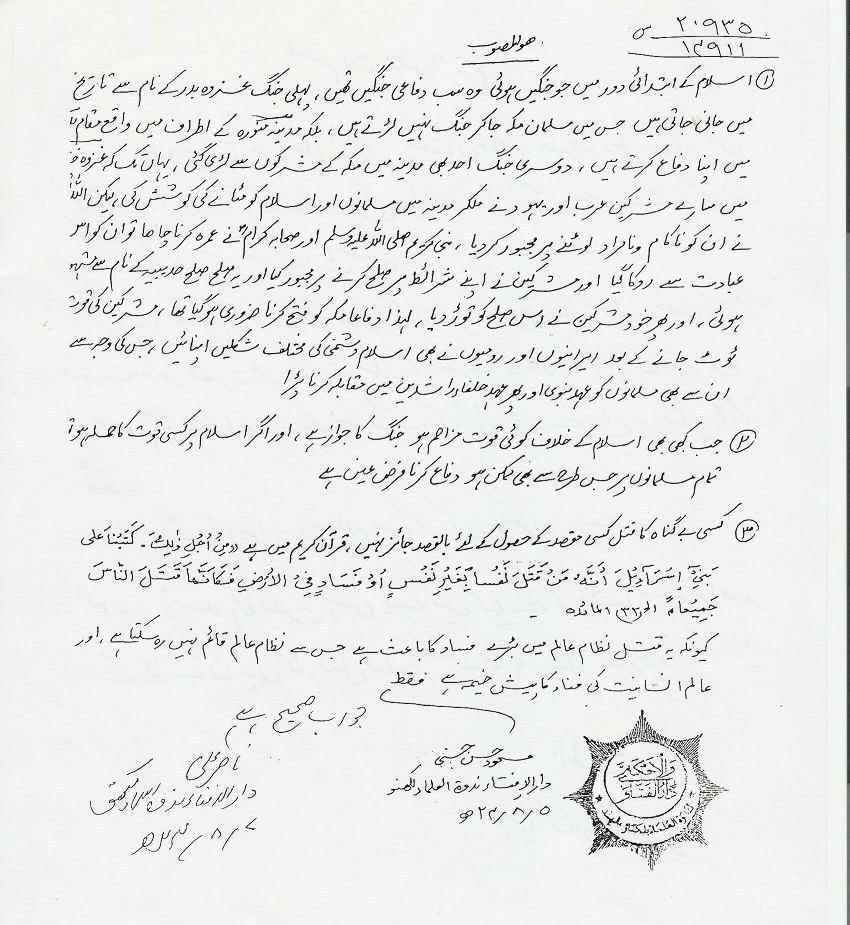 ۲۰۹۳۵ س
۱۳۹۱۱
ھو المصوب
① اسلام کے ابتدائی دور میں جو جنگیں ہوئی وہ سب دفاعی جنگیں تھیں، پہلی جنگ غزوہ بدر کے نام سے تاریخ
میں جانی جاتی ہیں جس میں مسلمان مکہ جا کر جنگ نہیں لڑتے ہیں، بلکہ مدینہ منورہ کے اطراف میں واقع مقام
میں اپنا دفاع کرتے ہیں، دوسری جنگ احد بھی مدینہ میں مکہ کے مشرکوں سے لڑی گئی، یہاں تک کہ غزوہ
میں سارے مشرکین عرب اور یہود نے ملکر مدینہ میں مسلمانوں اور اسلام کو مٹانے کی کوشش کی، لیکن اللہ
نے ان کو ناکام ونامراد لوٹنے پر مجبور کردیا، نبی کریم صلی اللہ علیہ وسلم اور صحابہ کرام نے عمرہ کرنا چاہا تو ان کو اس
عبادت سے روکا گیا اور مشرکین نے اپنے شرائط پر صلح کرنے پر مجبور کیا اور یہ صلح صلح حدیبیہ کے نام سے
ہوئی، اور پھر خود مشرکین نے اس صلح کو توڑ دیا، لہذا دفاعا مکہ کو فتح کرنا ضروری ہو گیا تھا، مشرکین کی قوت
ٹوٹ جانے کے بعد ایرانیوں اور رومیوں نے بھی اسلام دشمنی کی مختلف شکلیں اپنائیں، جس کی وجہ سے
ان سے بھی مسلمانوں کو عہد نبوی اور پھر عہد خلفاء راشدین میں مقابلہ کرنا پڑا
② جب کبھی بھی اسلام کے خلاف کوئی قوت مزاحم ہو جنگ کا جواز ہے، اور اگر اسلام پر کسی قوت کا حملہ ہو
تمام مسلمانوں پر جس طرح سے بھی ممکن ہو دفاع کرنا فرض عین ہے
③ کسی بے گناہ کا قتل کسی مقصد کے حصول کے لئے بالقصد جائز نہیں، قرآن کریم میں ہے "مِنْ أَجْلِ ذٰلِكَ۔ كَتَبْنَا عَلٰی
بَنِيْ إِسْرَاءِيْلَ أَنَّهٗ مَنْ قَتَلَ نَفْسًا بِغَيْرِ نَفْسٍ أَوْ فَسَادٍ فِي الْأَرْضِ فَكَأَنَّمَا قَتَلَ النَّاسَ
جَمِيْعًا الخ ۳۳ المائدہ
کیونکہ یہ قتل نظام عالم میں بڑے فساد کا باعث ہے جس سے نظام عالم قائم نہیں رہ سکتا ہے، اور
عالم انسانیت کی فناء کا پیش خیمہ ہے فقط
جواب صحیح ہے
مسعود حسن حسنی
دار الافتاء ندوۃ العلماء لکھنؤ
۵/۸/۲۴ھ
ناصر علی
دار الافتاء ندوۃ العلماء لکھنؤ
دار الافتاء